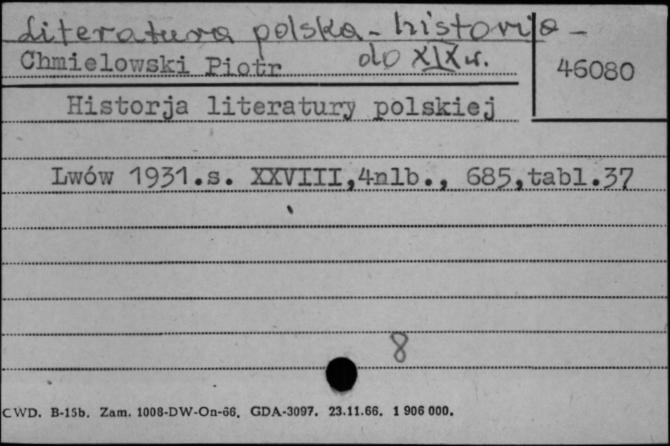 Literatura polska - historia -
do XIX w.
Chmielowski Piotr
46080
Historja literatury polskiej
Lwów 1931.s. XXVIII,4nlb., 685,tabl.37
8
CWD. B-15b. Zam. 1008-DW-On-66. GDA-3097. 23.11.66. 1 906 000.